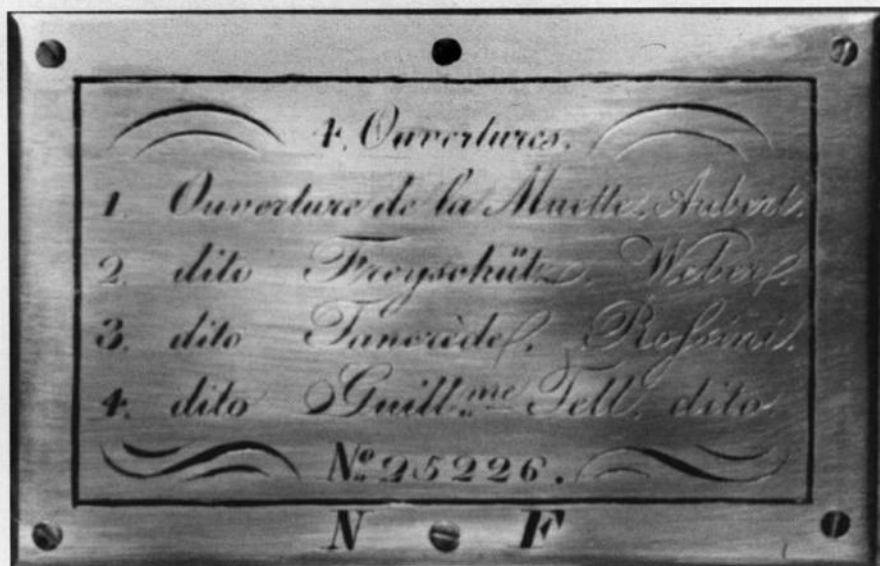 4. Ouvertures.
1. Ouverture de la Muette. Aubert.
2. dito Freyschütz. Weber.
3. dito Tancrède. Rossini.
4. dito Guill.me Tell. dito
No. 25226.
N F